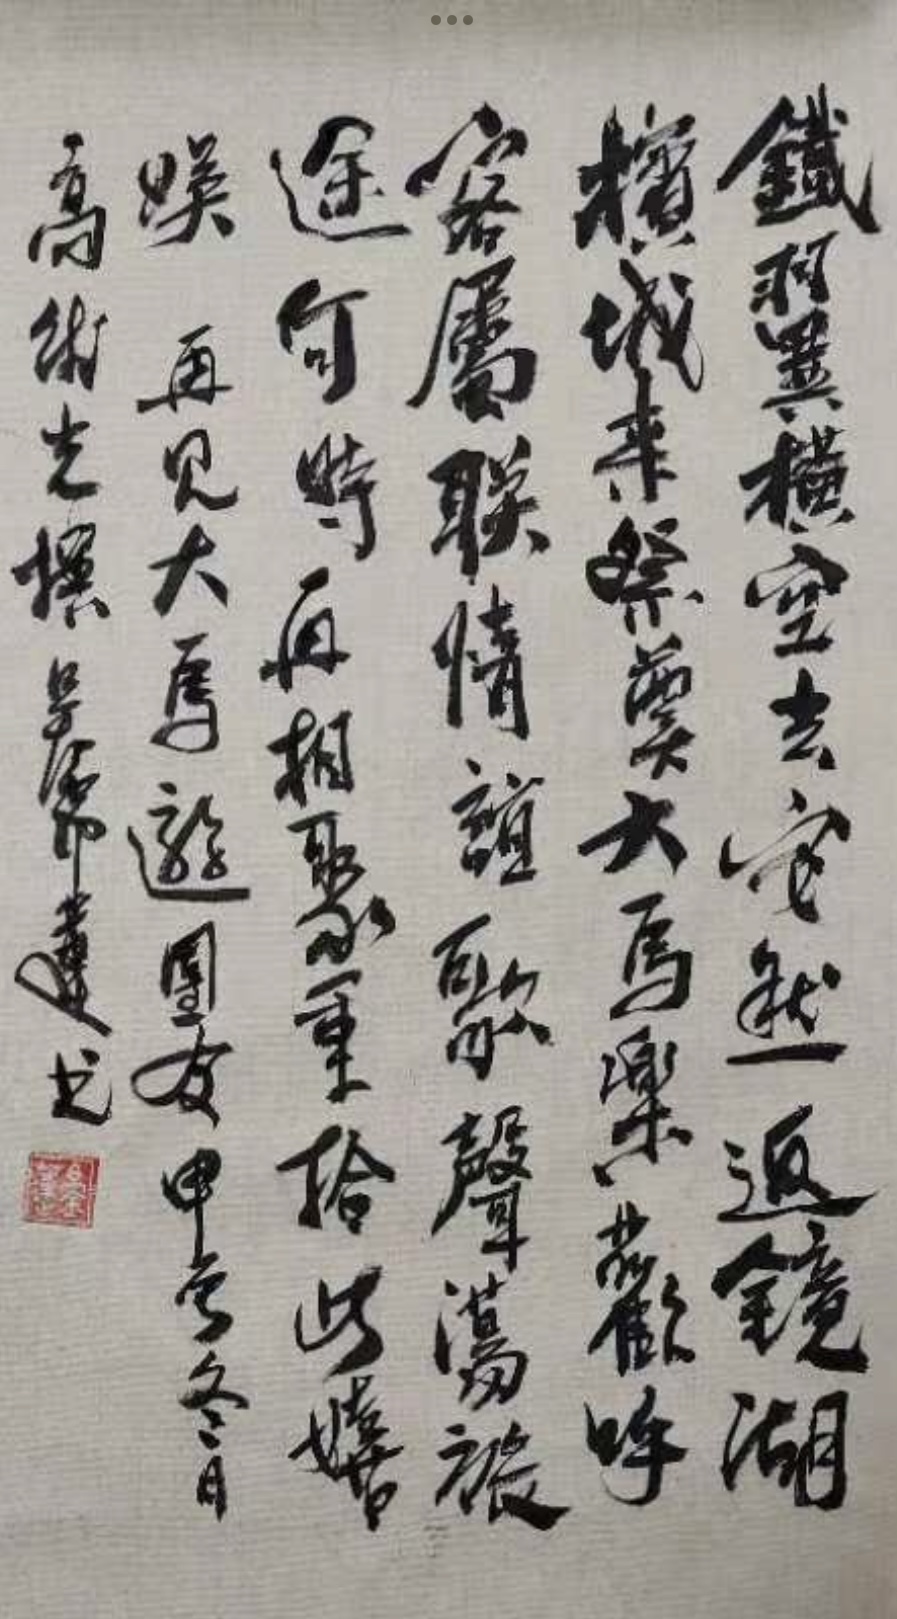 鐵翼橫空去安然返鏡湖
檳城來祭奠大馬樂歡呼
客屬聯情誼歌聲蕩旅
途何時再相聚重拾此嬉
娛 再見大馬遊團友甲辰冬月
高衛光撰吳書